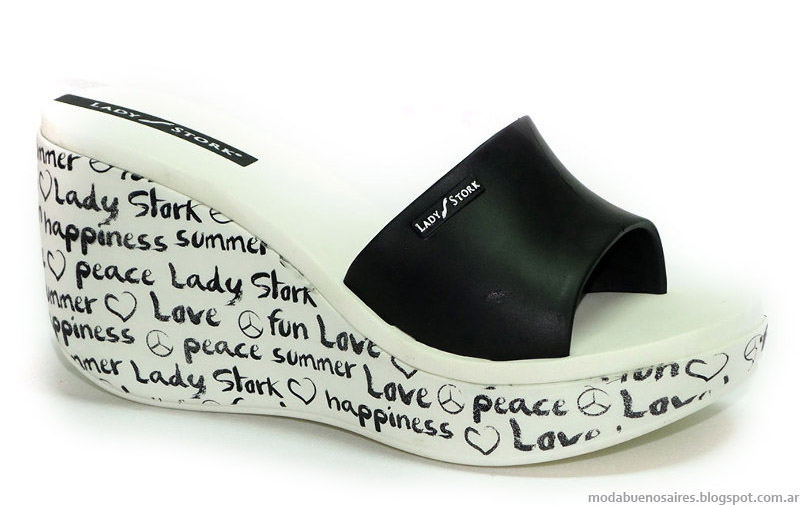 LADY STORK
LADY STORK
summer
Lady Stork
happiness summer
peace Lady Stork
summer Love fun Love
happiness peace summer Love peace fun
summer Lady Stork happiness Love
modabuenosaires.blogspot.com.ar